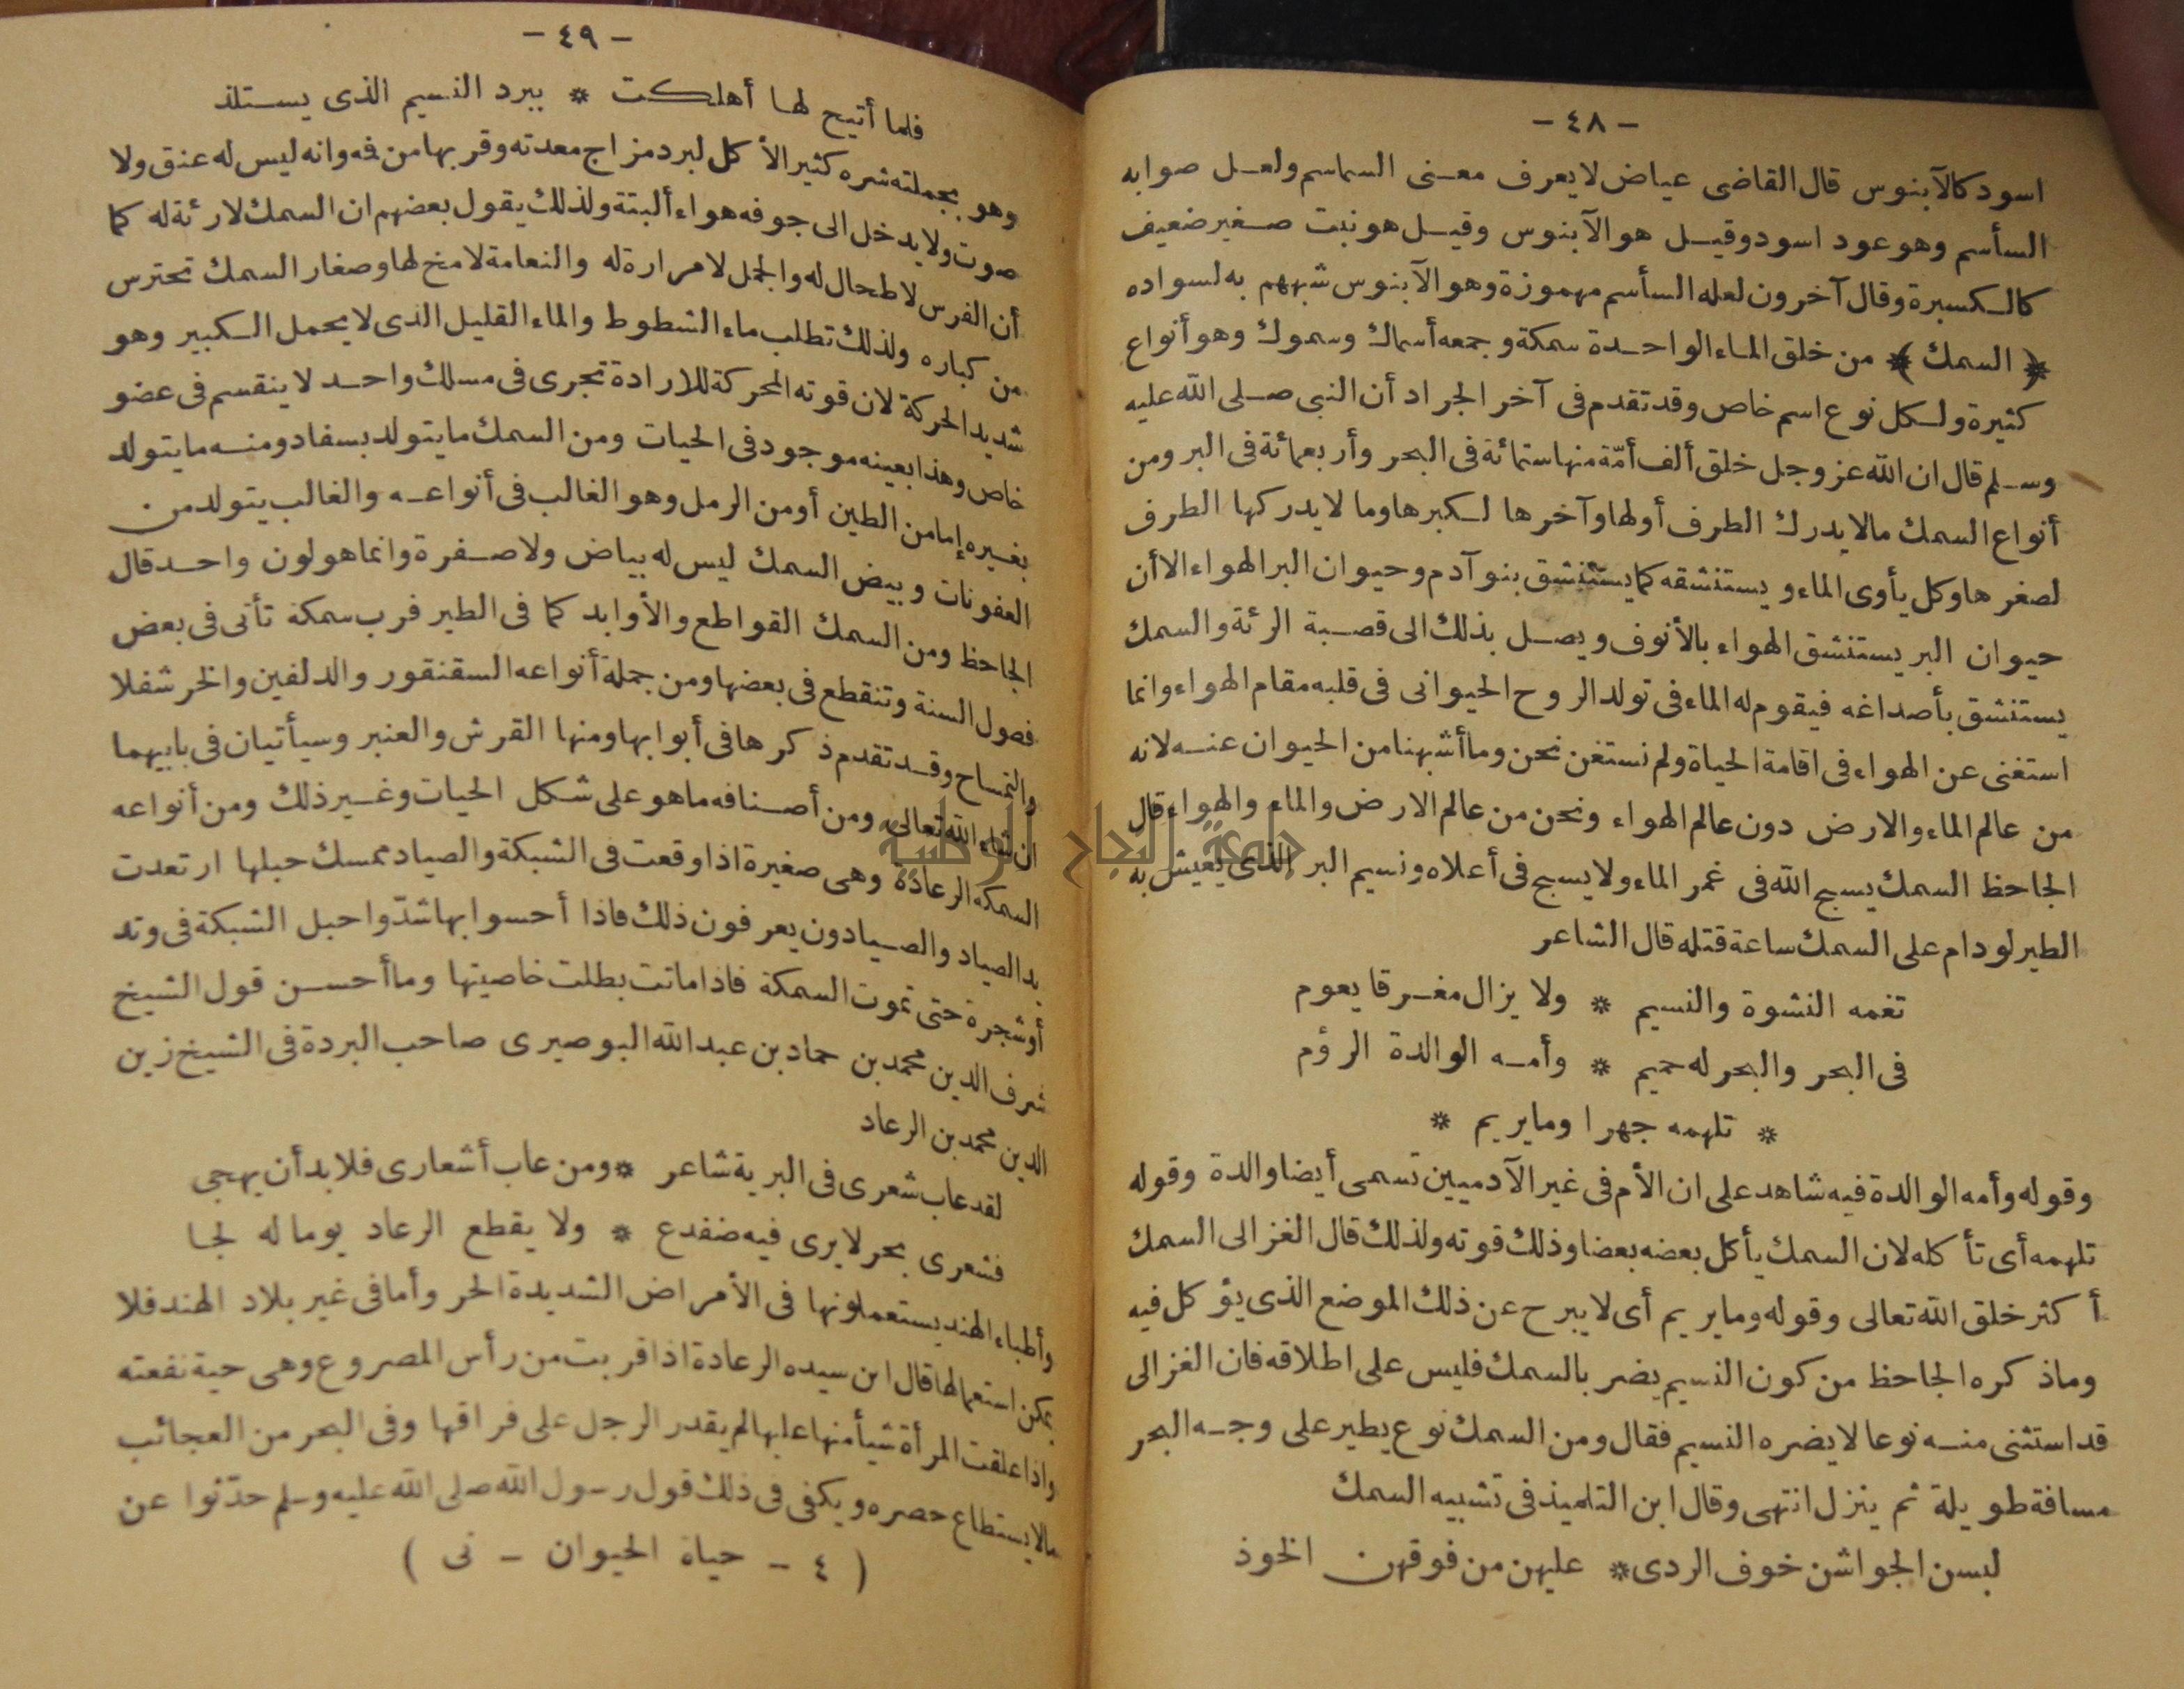 - ٤٨ -
اسود كالآبنوس قال القاضى عياض لا يعرف معنى السماسم ولعل صوابه
السأسم وهو عود اسود وقيل هو الآبنوس وقيل هو نبت صغير ضعيف
كالكسبرة وقال آخرون لعله السأسم مهموزة وهو الآبنوس شبههم به لسواده
﴿ السمك ﴾ من خلق الماء الواحدة سمكة وجمعه أسماك وسموك وهو أنواع
كثيرة ولكل نوع اسم خاص وقد تقدم فى آخر الجراد أن النبى صلى الله عليه
وسلم قال ان الله عز وجل خلق ألف أمّة منها ستمائة فى البحر وأربعمائة فى البر ومن
أنواع السمك مالا يدرك الطرف أولها وآخرها لكبرها وما لا يدركها الطرف
لصغرها وكل يأوى الماء ويستنشقه كما يستنشق بنو آدم وحيوان البر الهواء الا أن
حيوان البر يستنشق الهواء بالأنوف ويصل بذلك الى قصبة الرئة والسمك
يستنشق بأصداغه فيقوم له الماء فى تولد الروح الحيوانى فى قلبه مقام الهواء وانما
استغنى عن الهواء فى اقامة الحياة ولم نستغن نحن وما أشبهنا من الحيوان عنه لانه
من عالم الماء والارض دون عالم الهواء ونحن من عالم الارض والماء والهواء قال
الجاحظ السمك يسبح الله فى غمر الماء ولا يسبح فى أعلاه ونسيم البر الذى يعيش به
الطير لو دام على السمك ساعة قتله قال الشاعر
تغمه النشوة والنسيم * ولا يزال مغرقا يعوم
فى البحر والبحر له حميم * وأمه الوالدة الرؤم
* تلهمه جهرا وما يريم *
وقوله وأمه الوالدة فيه شاهد على ان الأم فى غير الآدميين تسمى أيضا والدة وقوله
تلهمه أى تأكله لان السمك يأكل بعضه بعضا وذلك قوته ولذلك قال الغزالى السمك
أكثر خلق الله تعالى وقوله وما يريم أى لا يبرح عن ذلك الموضع الذى يؤكل فيه
وماذكره الجاحظ من كون النسيم يضر بالسمك فليس على اطلاقه فان الغزالى
قد استثنى منه نوعا لا يضره النسيم فقال ومن السمك نوع يطير على وجه البحر
مسافة طويلة ثم ينزل انتهى وقال ابن التلميذ فى تشبيه السمك
لبسن الجواشن خوف الردى * عليهن من فوقهن الخوذ
- ٤٩ -
فلما أتيح لها أهلكت * ببرد النسيم الذى يستلذ
وهو بجملته شره كثير الأكل لبرد مزاج معدته وقربها من فه وانه ليس له عنق ولا
صوت ولا يدخل الى جوفه هواء ألبتة ولذلك يقول بعضهم ان السمك لا رئة له كما
أن الفرس لا طحال له والجمل لا مرارة له والنعامة لا مخ لها وصغار السمك تحترس
من كباره ولذلك تطلب ماء الشطوط والماء القليل الذى لا يحمل الكبير وهو
شديد الحركة لان قوته المحركة للارادة تجرى فى مسلك واحد لا ينقسم فى عضو
خاص وهذا بعينه موجود فى الحيات ومن السمك ما يتولد بسفاد ومنه ما يتولد
بغيره إما من الطين أو من الرمل وهو الغالب فى أنواعه والغالب يتولد من
العفونات وبيض السمك ليس له بياض ولا صفرة وانما هو لون واحد قال
الجاحظ ومن السمك القواطع والأوابد كما فى الطير فرب سمكة تأتى فى بعض
فصول السنة وتنقطع فى بعضها ومن جملة أنواعه السقنقور والدلفين والخرشفلا
والتمساح وقد تقدم ذكرها فى أبوابها ومنها القرش والعنبر وسيأتيان فى بابيهما
ان شاء الله تعالى ومن أصنافه ما هو على شكل الحيات وغير ذلك ومن أنواعه
السمكه الرعادة وهى صغيرة اذا وقعت فى الشبكة والصياد ممسك حبلها ارتعدت
يد الصياد والصيادون يعرفون ذلك فاذا أحسوا بها شدّوا حبل الشبكة فى وتد
أو شجرة حتى تموت السمكة فاذا ماتت بطلت خاصيتها وما أحسن قول الشيخ
شرف الدين محمد بن حماد بن عبد الله البوصيرى صاحب البردة فى الشيخ زين
الدين محمد بن الرعاد
لقد عاب شعرى فى البرية شاعر * ومن عاب أشعارى فلا بد أن يهجى
فشعرى بحر لا يرى فيه ضفدع * ولا يقطع الرعاد يوما له لجا
وأطباء الهند يستعملونها فى الأمراض الشديدة الحر وأما فى غير بلاد الهند فلا
يمكن استعمالها قال ابن سيده الرعادة اذا قربت من رأس المصروع وهى حية نفعته
واذا علقت المرأة شيأ منها عليها لم يقدر الرجل على فراقها وفى البحر من العجائب
مالا يستطاع حصره ويكفى فى ذلك قول رسول الله صلى الله عليه وسلم حدّثوا عن
( ٤ - حياة الحيوان - نى )
جامعة النجاح الوطنية